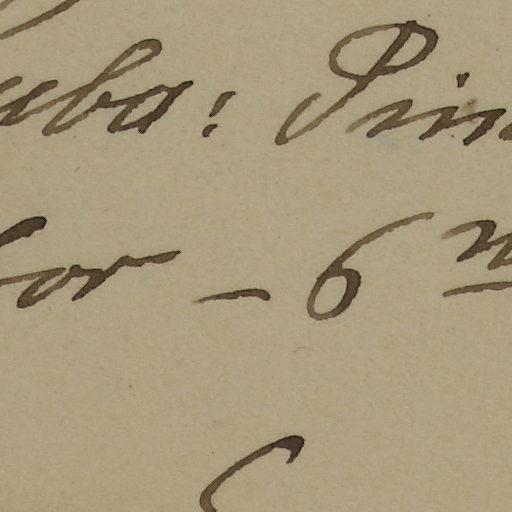 uba: Pin
for - 6 m